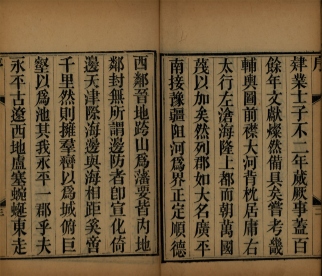 序
建業士子不二年蕆厥事蓋百
餘年文獻燦然備具矣嘗考畿
輔輿圖前襟大河背枕居庸右
太行左滄海隆上都而朝萬國
蔑以加矣然列郡如大名廣平
南接豫疆阻河為界正定順德
西鄰晉地跨山為藩要皆內地
鄰封無所謂邊防者卽宣化倚
邊天津際海邊與海相距奚啻
千里然則擁羣巒以為城俯巨
壑以為池其我永平一郡乎夫
永平古遼西地盧塞蜿蜒東走